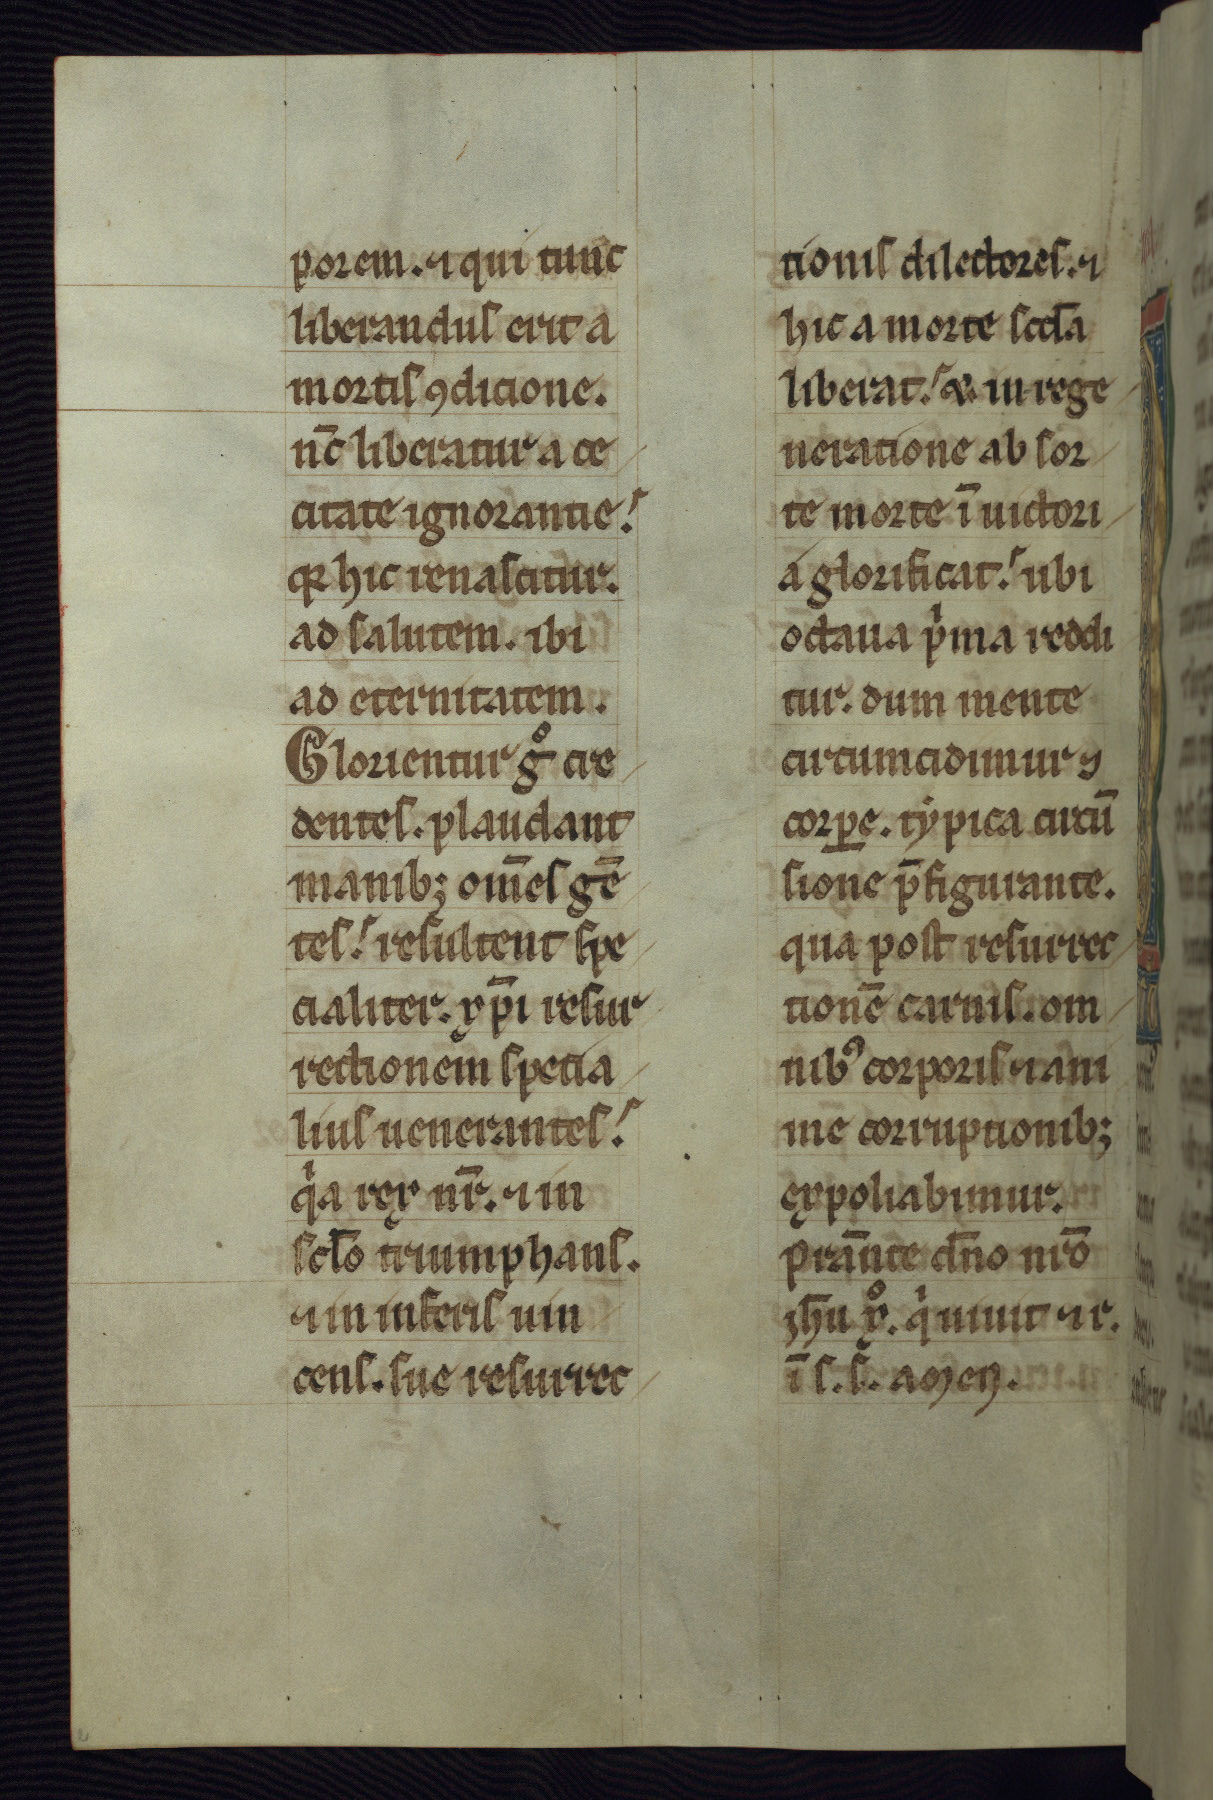 porem. ⁊ qui tunc
liberandus erit a
mortis ꝯdicione.
nc̄ liberatur a ce
citate ignorantie.
qꝛ hic renascitur.
ad salutem. ibi
ad eternitatem.
Glorientur gͦ cre
dentes. plaudant
manibꝫ om̄es gē
tes. resultent spe
cialiter. xp̄i resur
rectionem specia
lius uenerantes.
qͥa rex nr̄. ⁊ in
scl̄o triumphans.
⁊ in inferis uin
cens. sue resurrec
tionis dilectores. ⁊
hic a morte scd̄a
liberat. ⁊ in rege
neratione absor
te morte ī uictori
a glorificat. ubi
octaua pͥma reddi
tur. dum mente
circumcidimur ⁊
corꝑe. typica circū
sione p̄figurante.
qua post resurrec
tionē carnis. om
nibꝰ corporis ⁊ ani
me corruptionibꝫ
expoliabimur.
Prān̄te dn̄o nr̄o
ihū xͦ. qͥ uiuit ⁊ r.
ī s. s. amen.